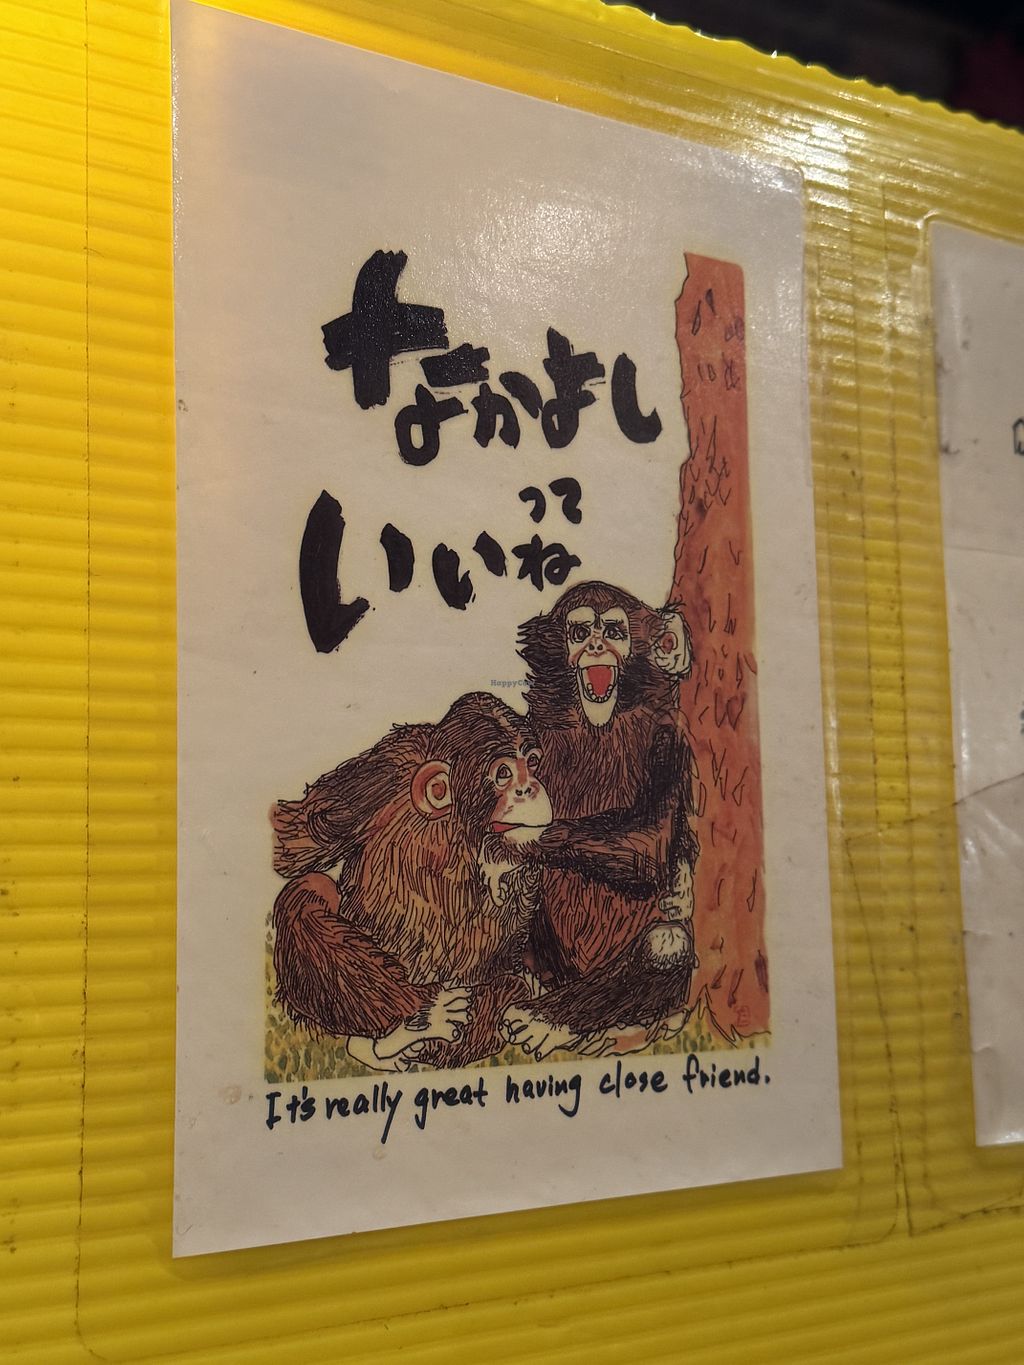 なかよし
いいって
ね
HappyCow
It's really great having close friend.